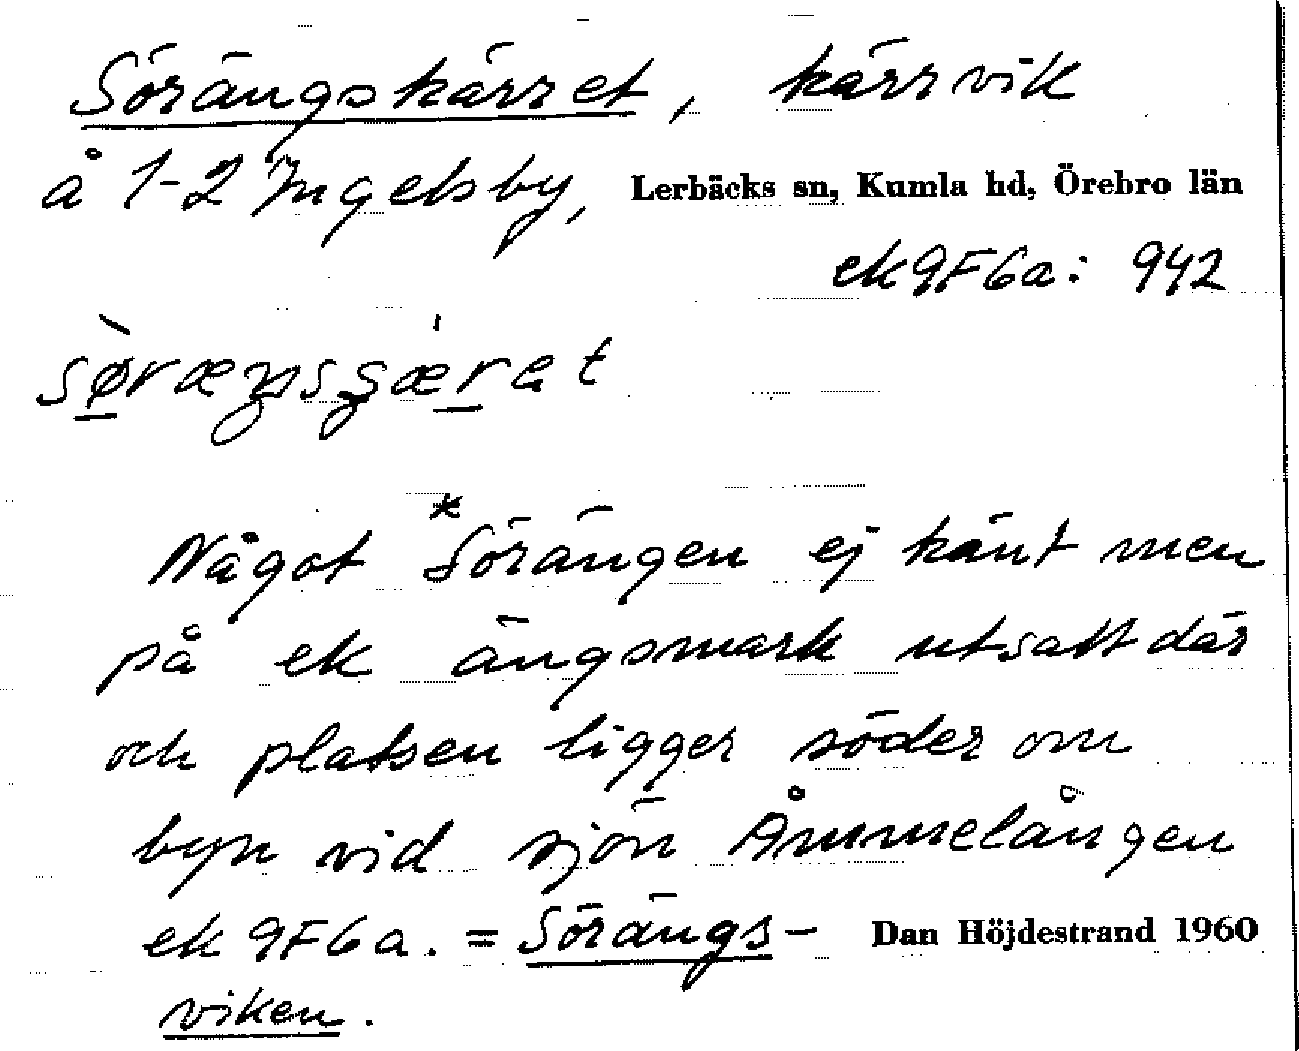 Sörängskärret, kärrvik
å 1-2 Ingelsby, Lerbäcks sn, Kumla hd, Örebro län
ek 9F6a: 942
Något *Sörängen ej känt men
på ek ängsmark utsatt där
och platsen ligger söder om
byn vid sjön Åmmelången
ek 9F6a. = Sörängs- Dan Höjdestrand 1960
viken.